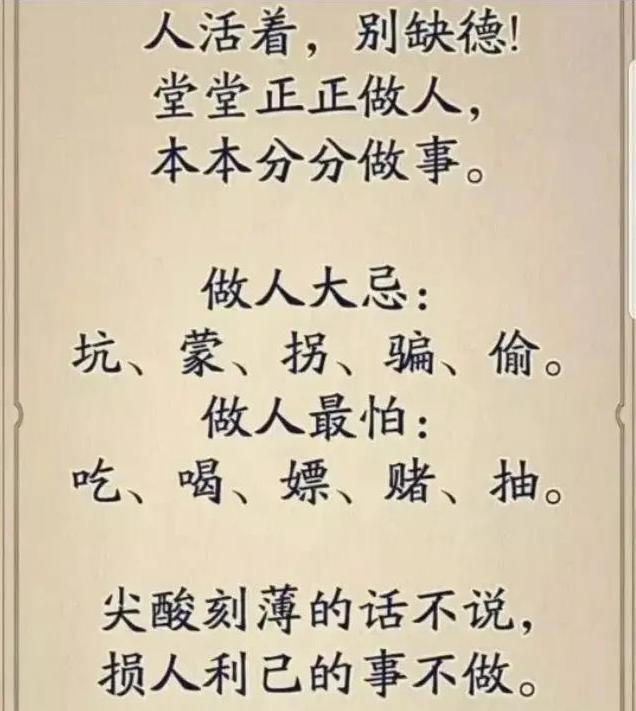 人活着，别缺德!
堂堂正正做人，
本本分分做事。
做人大忌：
坑、蒙、拐、骗、偷。
做人最怕：
吃、喝、嫖、赌、抽。
尖酸刻薄的话不说，
损人利己的事不做。